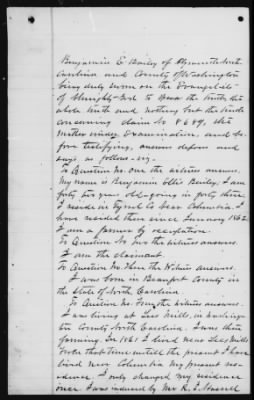 Benjamin E. Bailey of Plymouth North
Carolina and County of Washington
being duly sworn on the Evangelist
of Almighty God to speak the truth the
whole truth and nothing but the truth
concerning claim No 8649, the
matter under examination, and be-
fore testifying, answers deposes and
says as follows
To Question No. one the witness answers.
My name is Benjamin Bailey, I am
forty two years old going in forty three.
I reside in Tyrrel Co near Columbia. I
have resided there since January 1862
I am a farmer by occupation.
To Question No two the witness answers.
I am the claimant.
To Question No three the Witness answers.
I was born in Beaufort County in
the State of North Carolina.
To Question No Fourth the witness answers.
I was living at Lees Mills, in Washing-
ton County North Carolina. I was there
farming. In 1861 I lived near Lees Mills
from that time untill the present I have
lived near Columbia my present res-
idence. I only changed my residence
once. I was induced by Mr